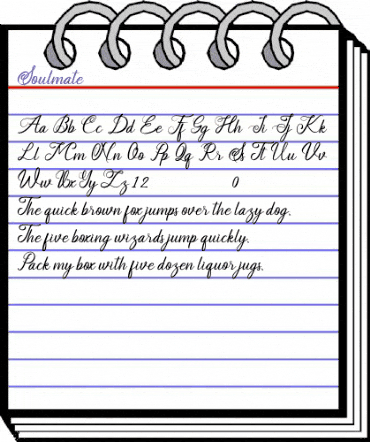 Soulmate
Aa Bb Cc Dd Ee Ff Gg Hh Ii Jj Kk
Ll Mm Nn Oo Pp Qq Rr Ss Tt Uu Vv
Ww Xx Yy Zz 1 2 0
The quick brown fox jumps over the lazy dog.
The five boxing wizards jump quickly.
Pack my box with five dozen liquor jugs.